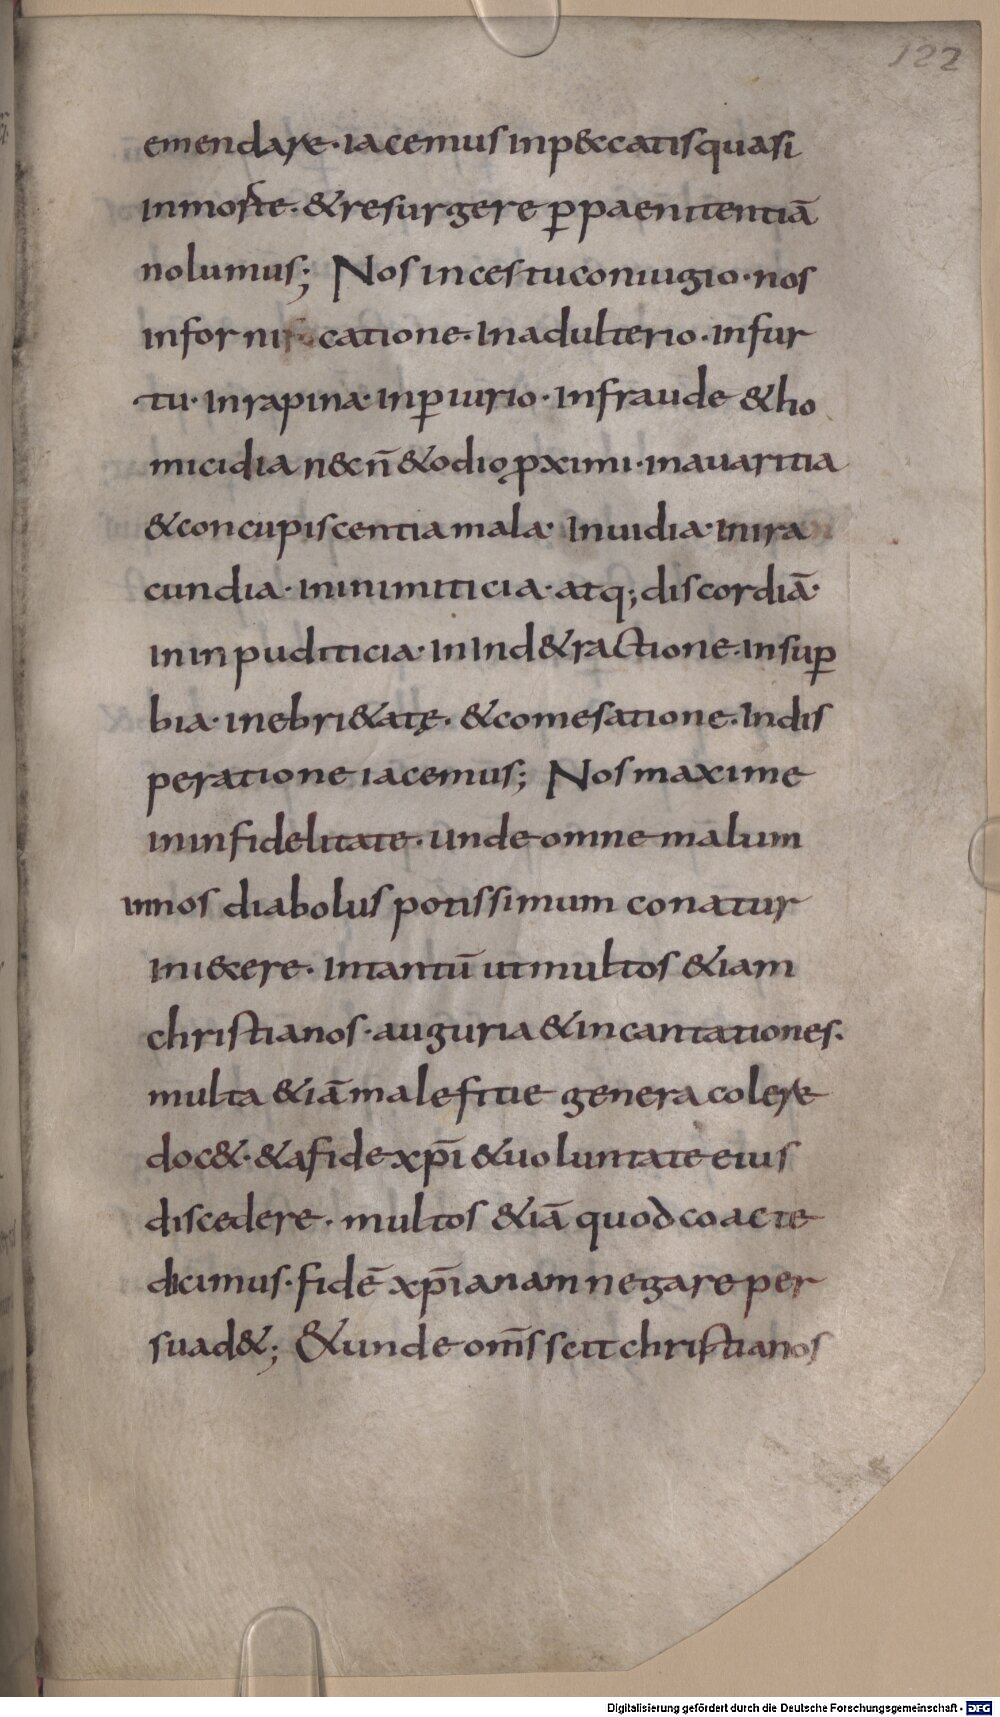 122
emendare· iacemus inp&ccatis quasi
inmorte· & resurgere p̄ paenitentiā
nolumus; Nos incestu coniugio· nos
infornicatione· Inadulterio· infur
tu· Inrapina· inp̄iurio· Infraude & ho
micidia n&c n̄ & odio ꝓximi· inauaritia
& concupiscentia mala· Inuidia· inira
cundia· ininimiticia· atq; discordiā·
in inpuditicia· in Ind&ractione· insup̄
bia· inebri&atę· & comesatione· Indis
peratione iacemus; Nos maxime
in infidelitate· unde omne malum
innos diabolus potissimum conatur
ini&cere· Intantū ut multos &iam
christianos· auguria & incantationes·
multa &iā malefitie genera colere
doc&· & a fide xp̄i & uoluntate eius
discedere· multos &iā quod coacte
dicimus· fidē xp̄ianam negare per
suad&; &unde om̄s scit christianos
Digitalisierung gefördert durch die Deutsche Forschungsgemeinschaft - DFG